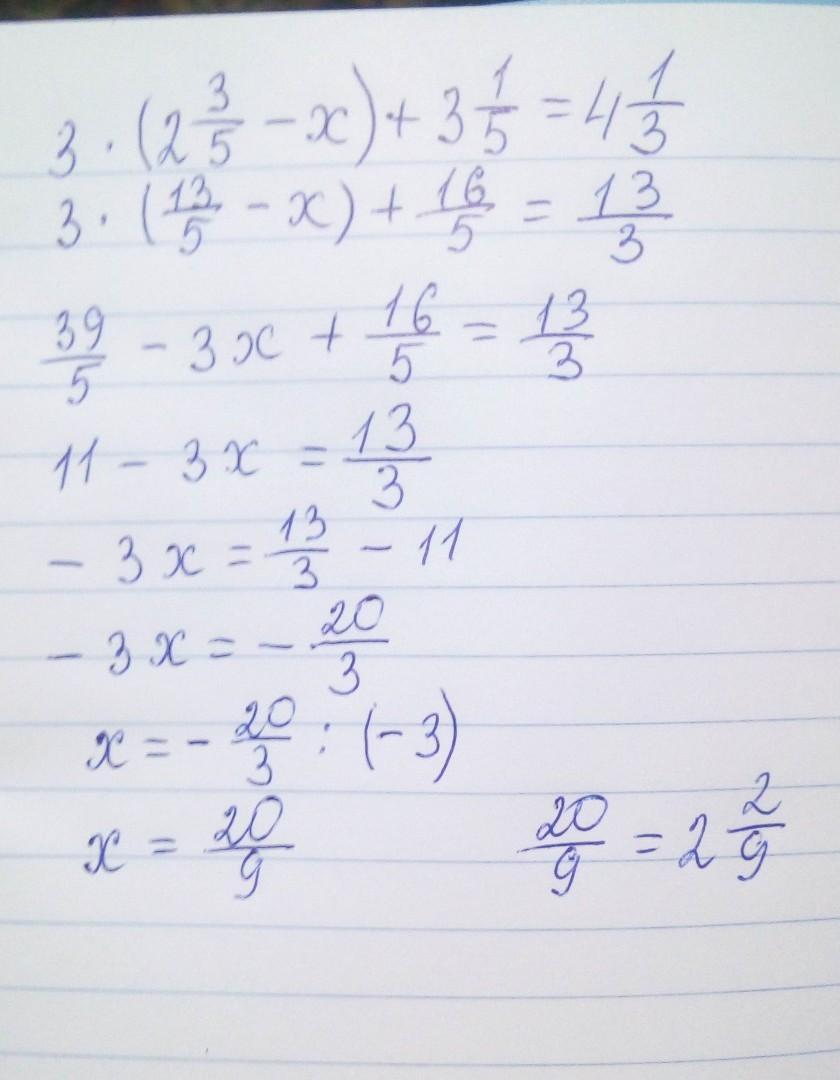 3 · (2 3/5 - x) + 3 1/5 = 4 1/3
3 · (13/5 - x) + 16/5 = 13/3
39/5 - 3x + 16/5 = 13/3
11 - 3x = 13/3
- 3x = 13/3 - 11
- 3x = - 20/3
x = - 20/3 : (-3)
x = 20/9    20/9 = 2 2/9